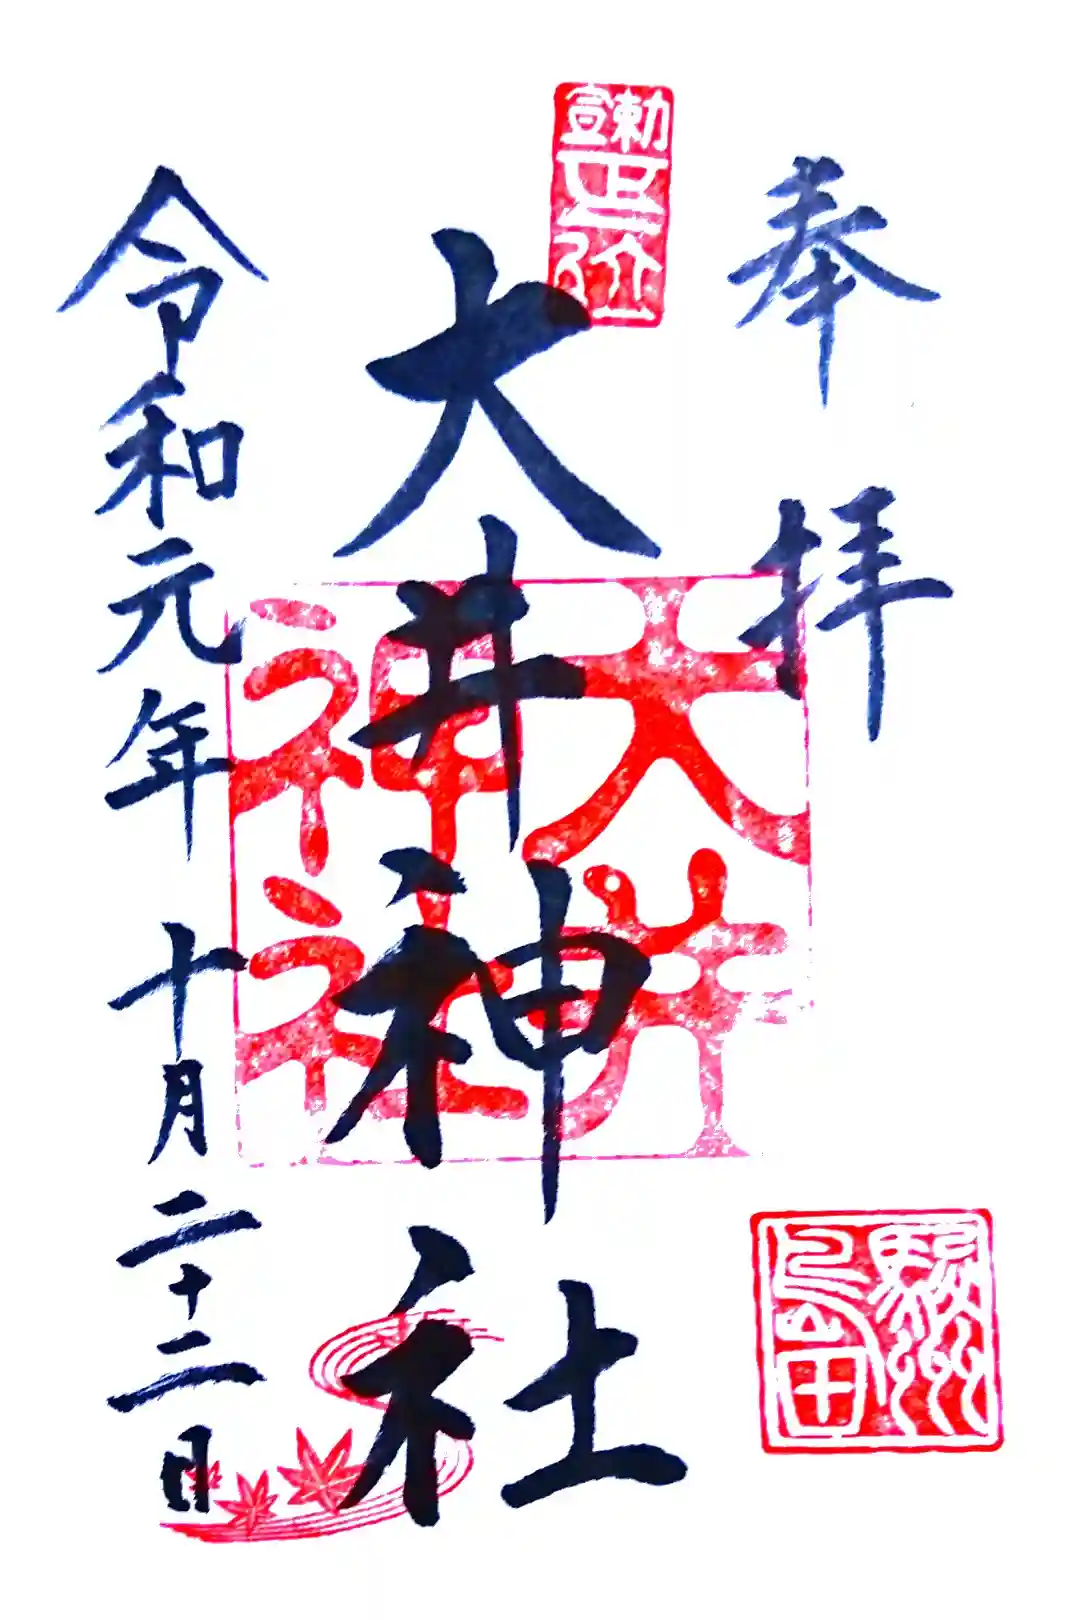 奉拝
勅宣正一位
大井神社
大井
神社
駿州
島田
令和元年十月二十二日